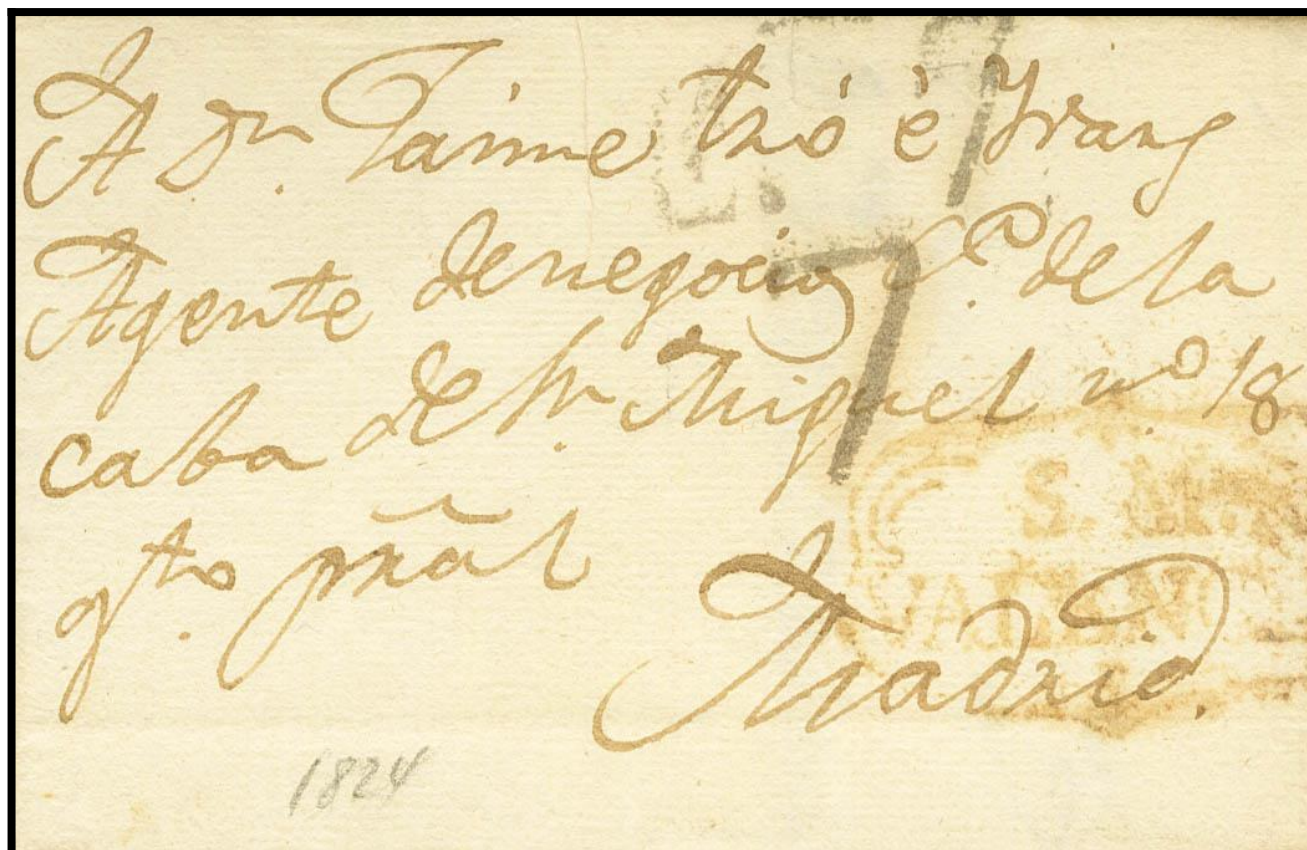 A Dn. Jaime tró è Yranz
Agente de negocios C.ª de la
caba de Sn. Miguel nº 18
qto. prãl
Madrid.
7
7
S.M.
VALENCI
1824